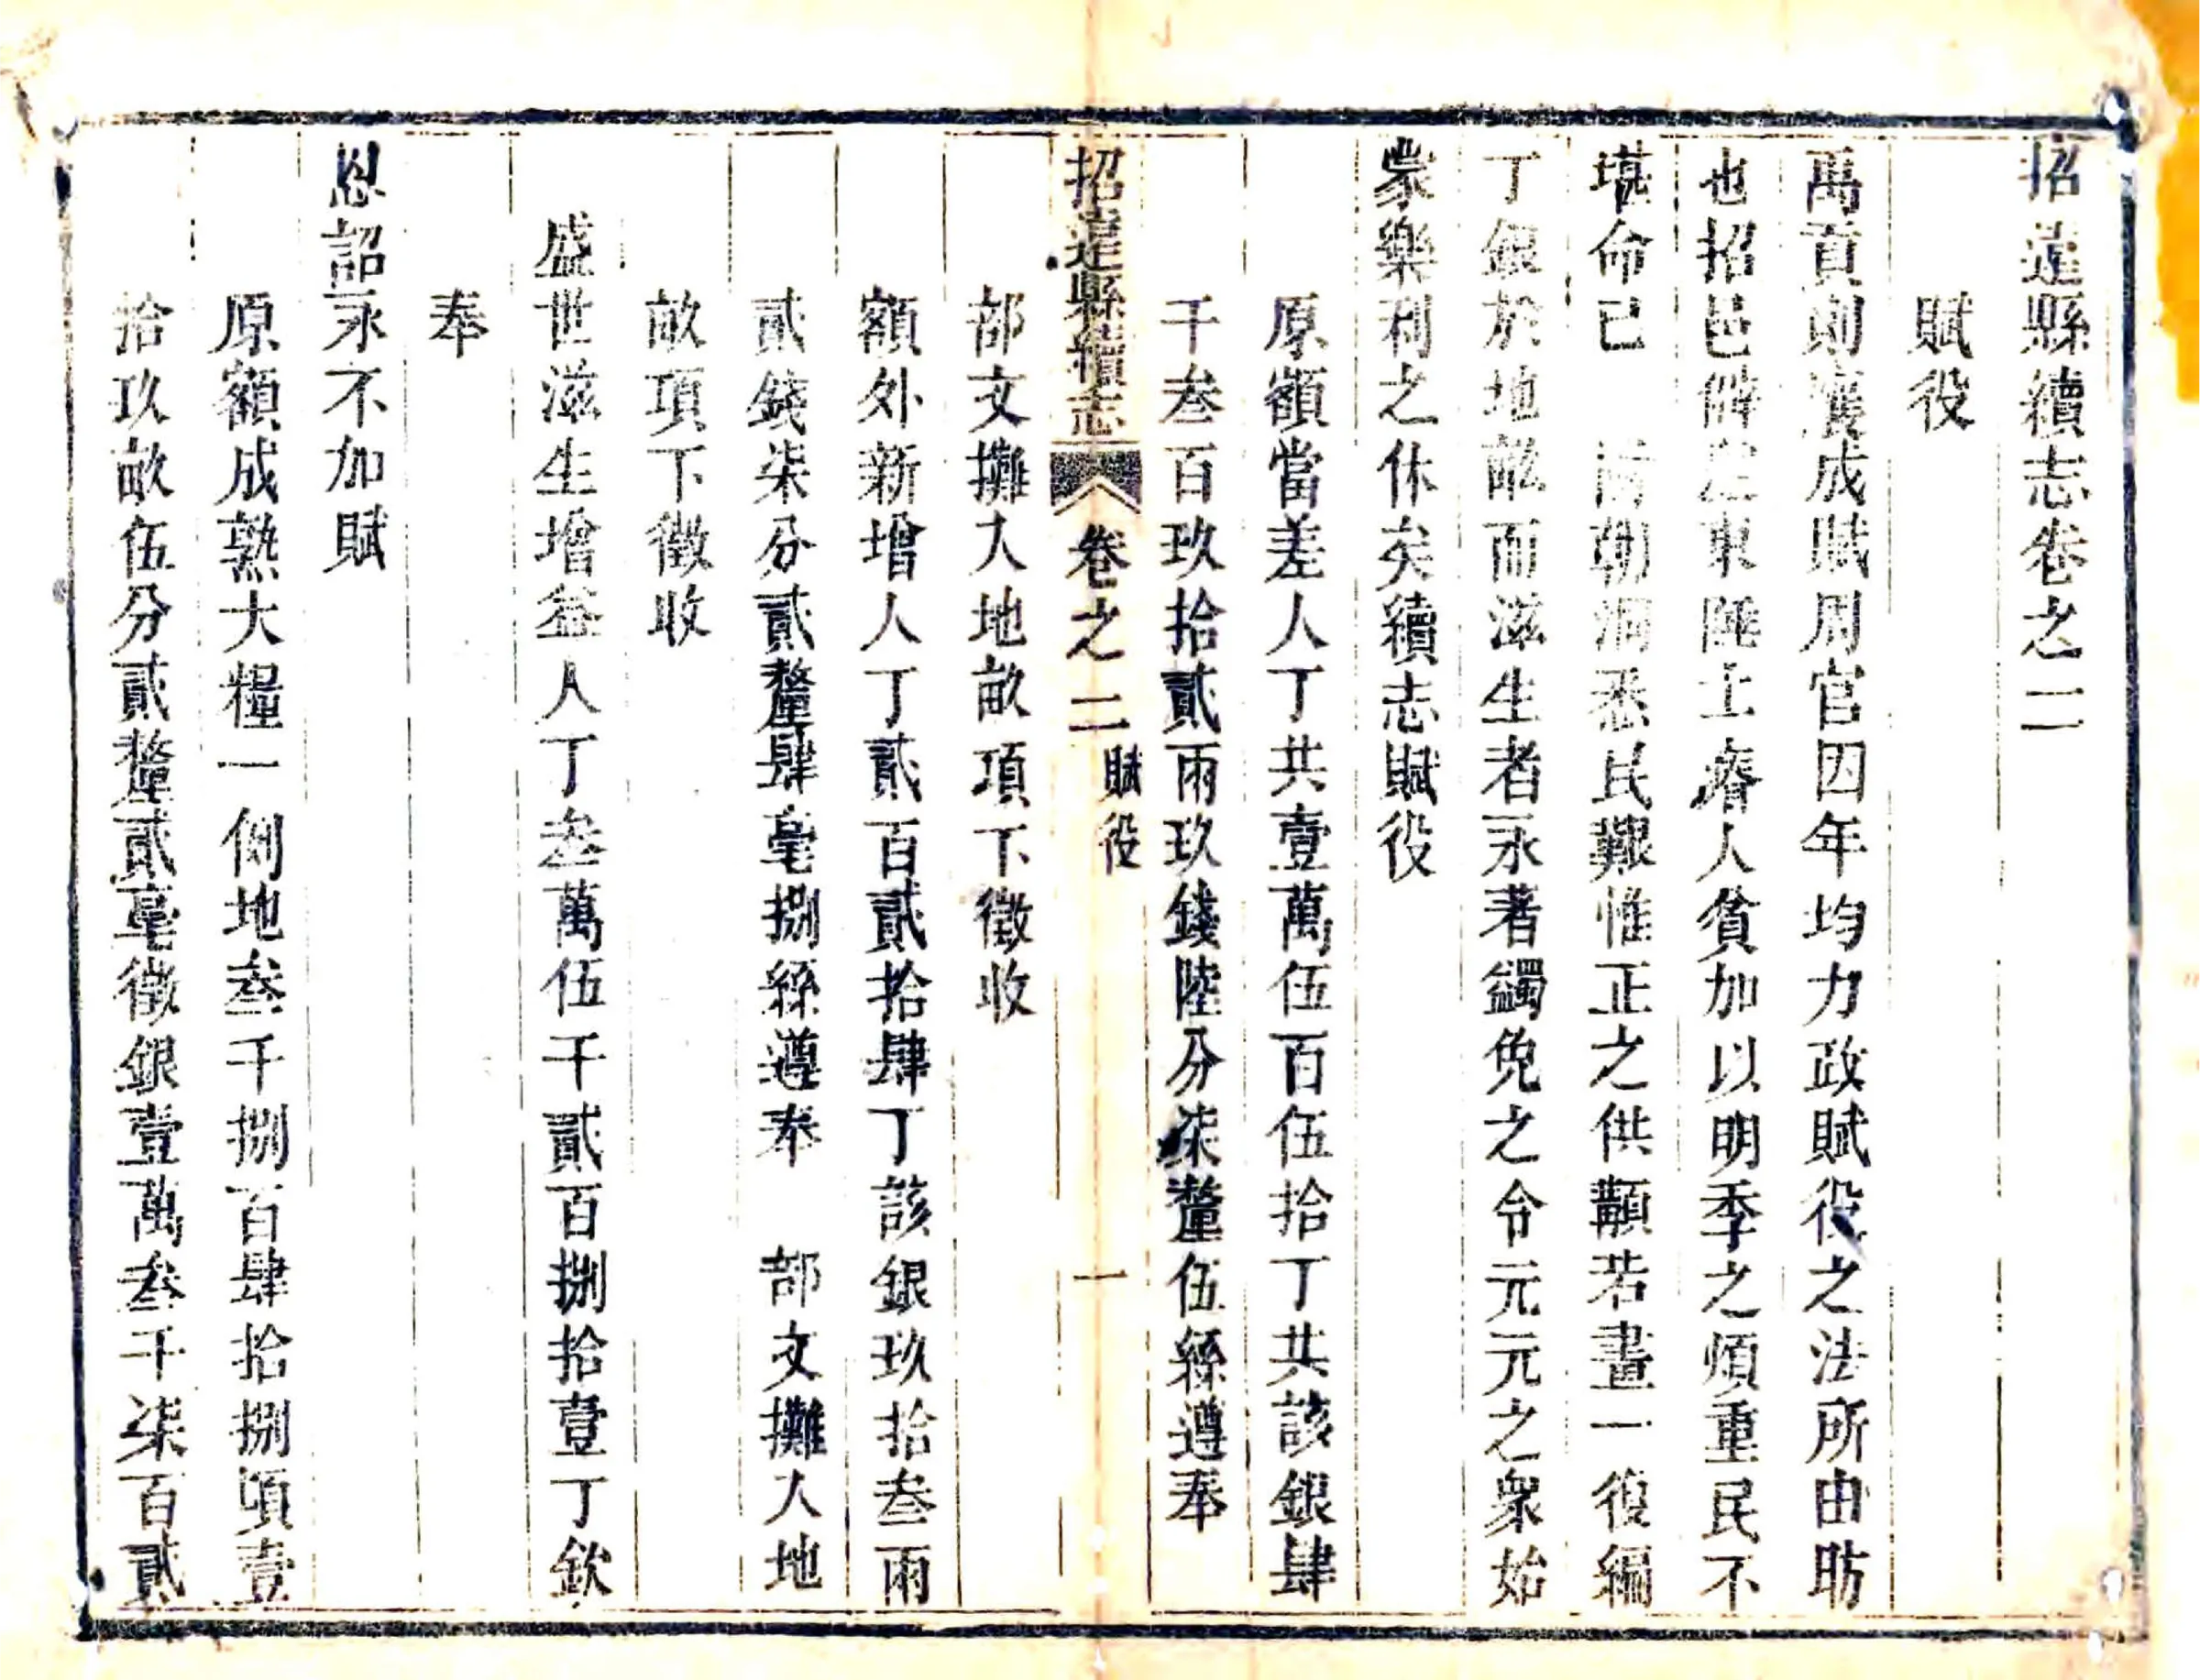 招遠縣續志卷之二
賦役
禹貢則壤成賦周官因年均力政賦役之法所由昉
也招邑僻處東陲土瘠人貧加以明季之煩重民不
堪命已 朝洞悉民艱惟正之供顜若畫一復編
丁銀於地畝而滋生者永著蠲免之令元元之衆始
蒙樂利之休矣續志賦役
原額當差人丁共壹萬伍百伍拾丁共該銀肆
千叁百玖拾貳兩玖錢陸分柒釐伍絲遵奉
招遠縣續志 卷之二 賦役 一
部文攤入地畝項下徵收
額外新增人丁貳百貳拾肆丁該銀玖拾叁兩
貳錢柒分貳釐肆毫捌絲遵奉 部文攤入地
畝項下徵收
盛世滋生增益人丁叁萬伍千貳百捌拾壹丁欽
奉
恩詔永不加賦
原額成熟大糧一例地叁千捌百肆拾捌頃壹
拾玖畝伍分貳釐貳毫徵銀壹萬叁千柒百貳